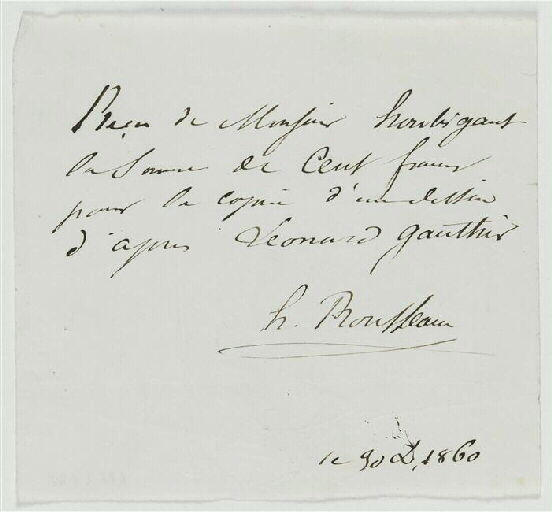 Reçu de Monsieur houbigant
la Somme de Cent francs
pour la copie d'un dessin
d'après Léonard gauthier
h. Rousseau
le 1860